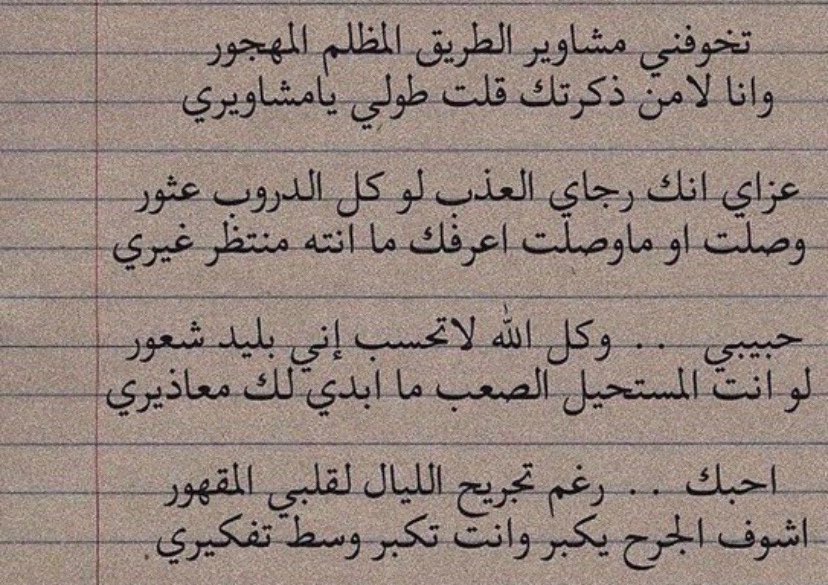 تخوفني مشاوير الطريق المظلم المهجور
وانا لامن ذكرتك قلت طولي يامشاويري
عزاي انك رجاي العذب لو كل الدروب عثور
وصلت او ماوصلت اعرفك ما انته منتظر غيري
حبيبي .. وكل الله لاتحسب إني بليد شعور
لو انت المستحيل الصعب ما ابدي لك معاذيري
احبك .. رغم تجريح الليال لقلبي المقهور
اشوف الجرح يكبر وانت تكبر وسط تفكيري